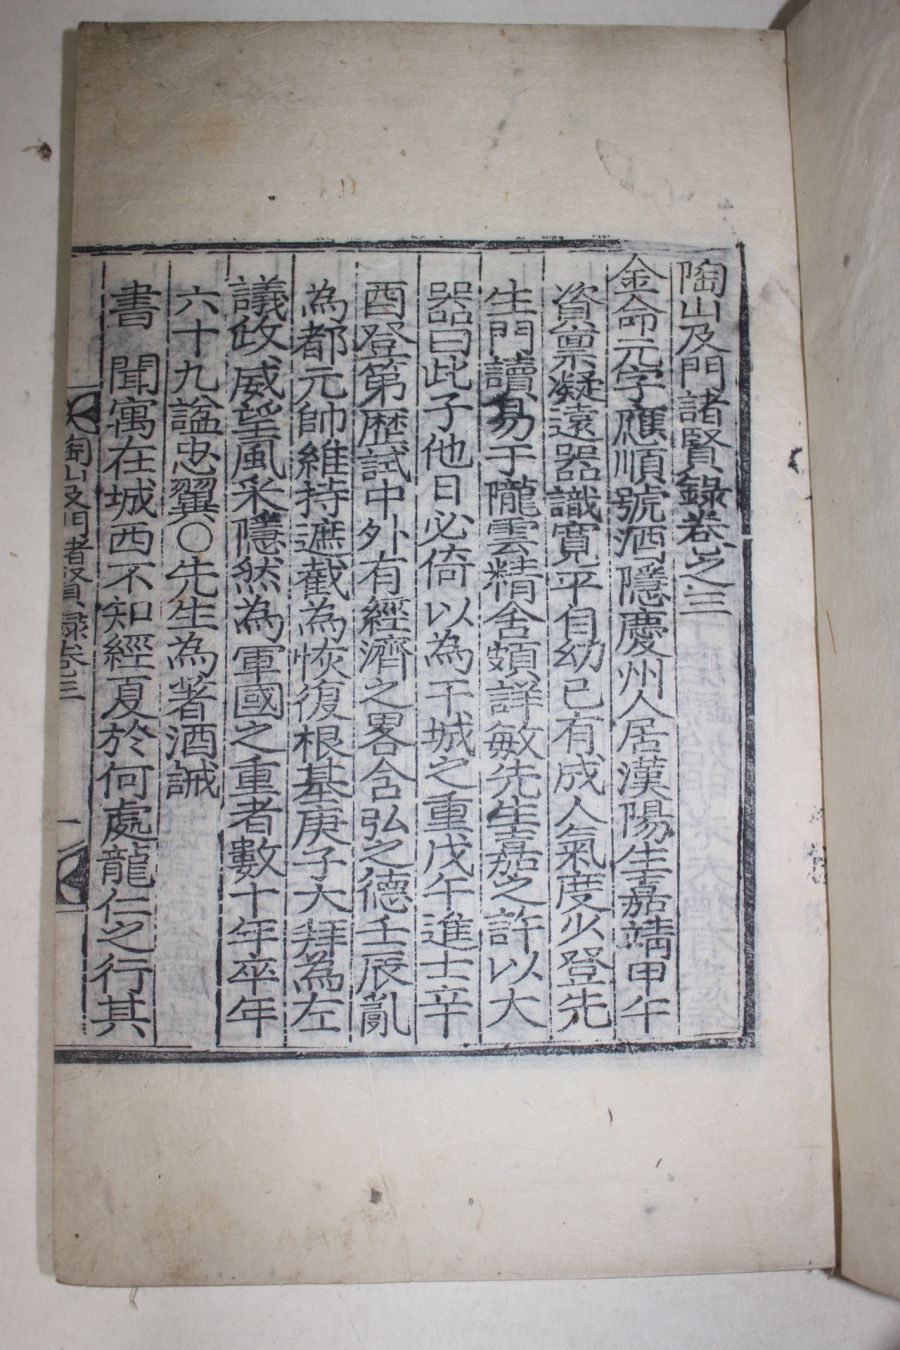 陶山及門諸賢錄卷之三
金命元字應順號酒隱慶州人居漢陽生嘉靖甲午
資稟凝遠器識寬平自幼已有成人氣度少登先
生門讀易于隴雲精舍頗詳敏先生嘉之許以大
器曰此子他日必倚以為干城之重戊午進士辛
酉登第歷試中外有經濟之畧含弘之德壬辰亂
為都元帥維持遮截為恢復根基庚子大拜為左
議政威望風采隱然為軍國之重者數十年卒年
六十九諡忠翼○先生為著酒誡
書 聞寓在城西不知經夏於何處龍仁之行其
陶山及門諸賢錄卷三 一